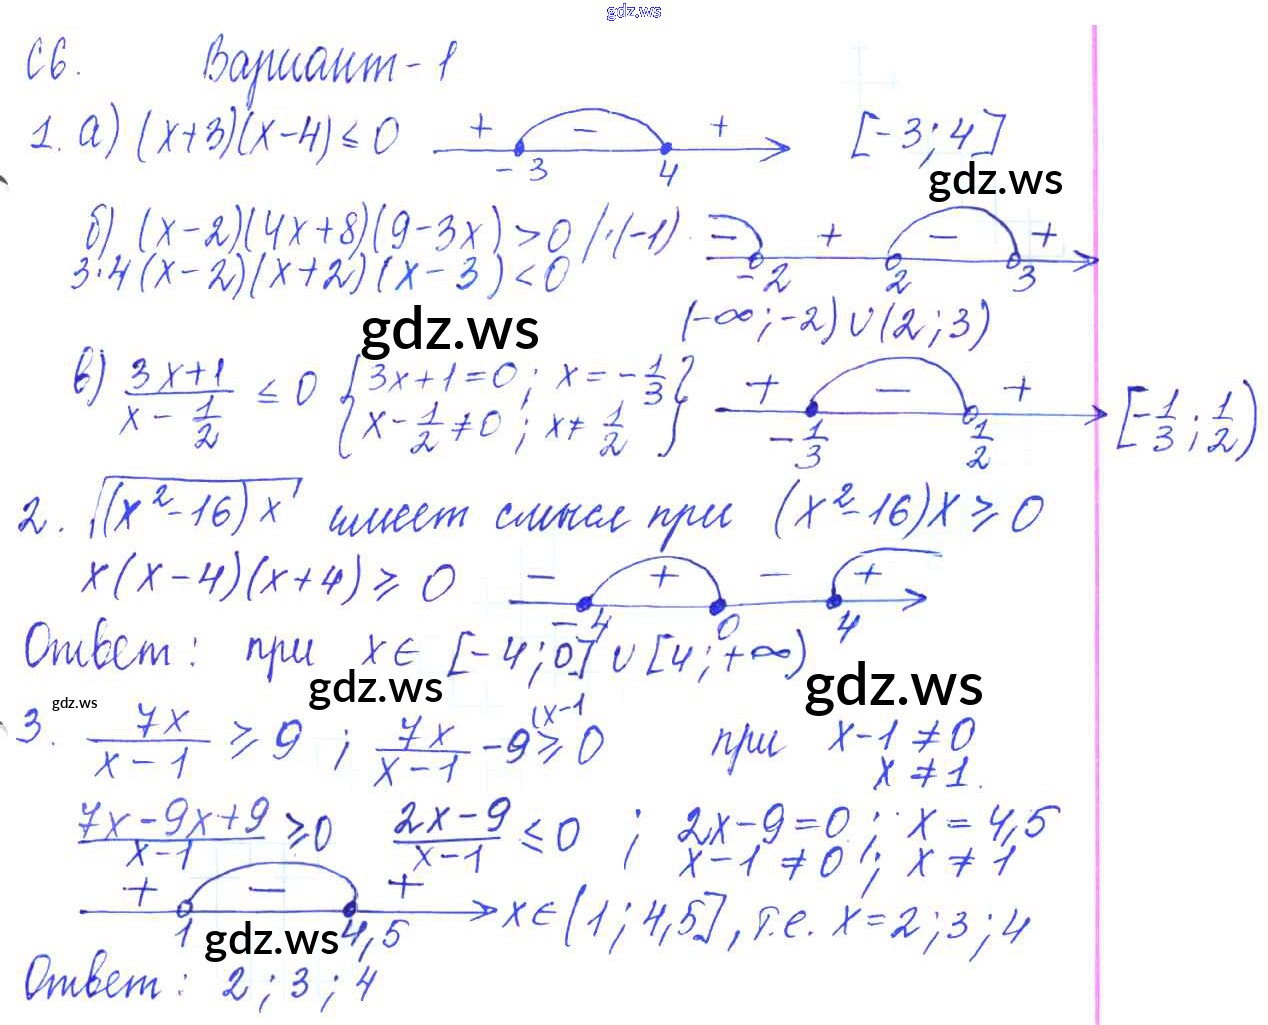 gdz.ws
С6. Вариант-1
1. а) (x+3)(x-4) ≤ 0 + - + -3 4 [-3; 4]
gdz.ws
б) (x-2)(4x+8)(9-3x) > 0 /·(-1) - + - + -2 2 3
3·4(x-2)(x+2)(x-3) < 0
(-∞; -2) ∪ (2; 3)
gdz.ws
в) (3x+1)/(x - 1/2) ≤ 0 {3x+1=0; x = -1/3
x - 1/2 ≠ 0; x ≠ 1/2} + - + -1/3 1/2 [-1/3; 1/2)
2. √((x²-16)x) имеет смысл при (x²-16)x ≥ 0
x(x-4)(x+4) ≥ 0 - + - + -4 0 4
Ответ: при x ∈ [-4; 0] ∪ [4; +∞)
gdz.ws gdz.ws gdz.ws
3. 7x/(x-1) ≥ 9; 7x/(x-1) - 9 (x-1 ≥ 0 при x-1 ≠ 0
x ≠ 1.
(7x-9x+9)/(x-1) ≥ 0 (2x-9)/(x-1) ≤ 0; 2x-9=0; x = 4,5
x-1 ≠ 0; x ≠ 1
+ - + 1 4,5 x ∈ (1; 4,5], т.е. x = 2; 3; 4
gdz.ws
Ответ: 2; 3; 4